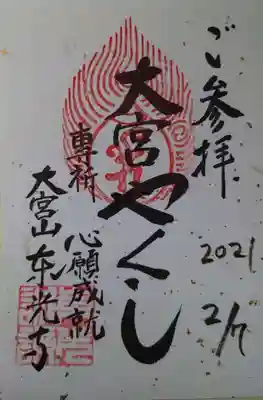 ご参拝
2021
2/7
大宮やくし
専祈
心願成就
大宮山 東光寺